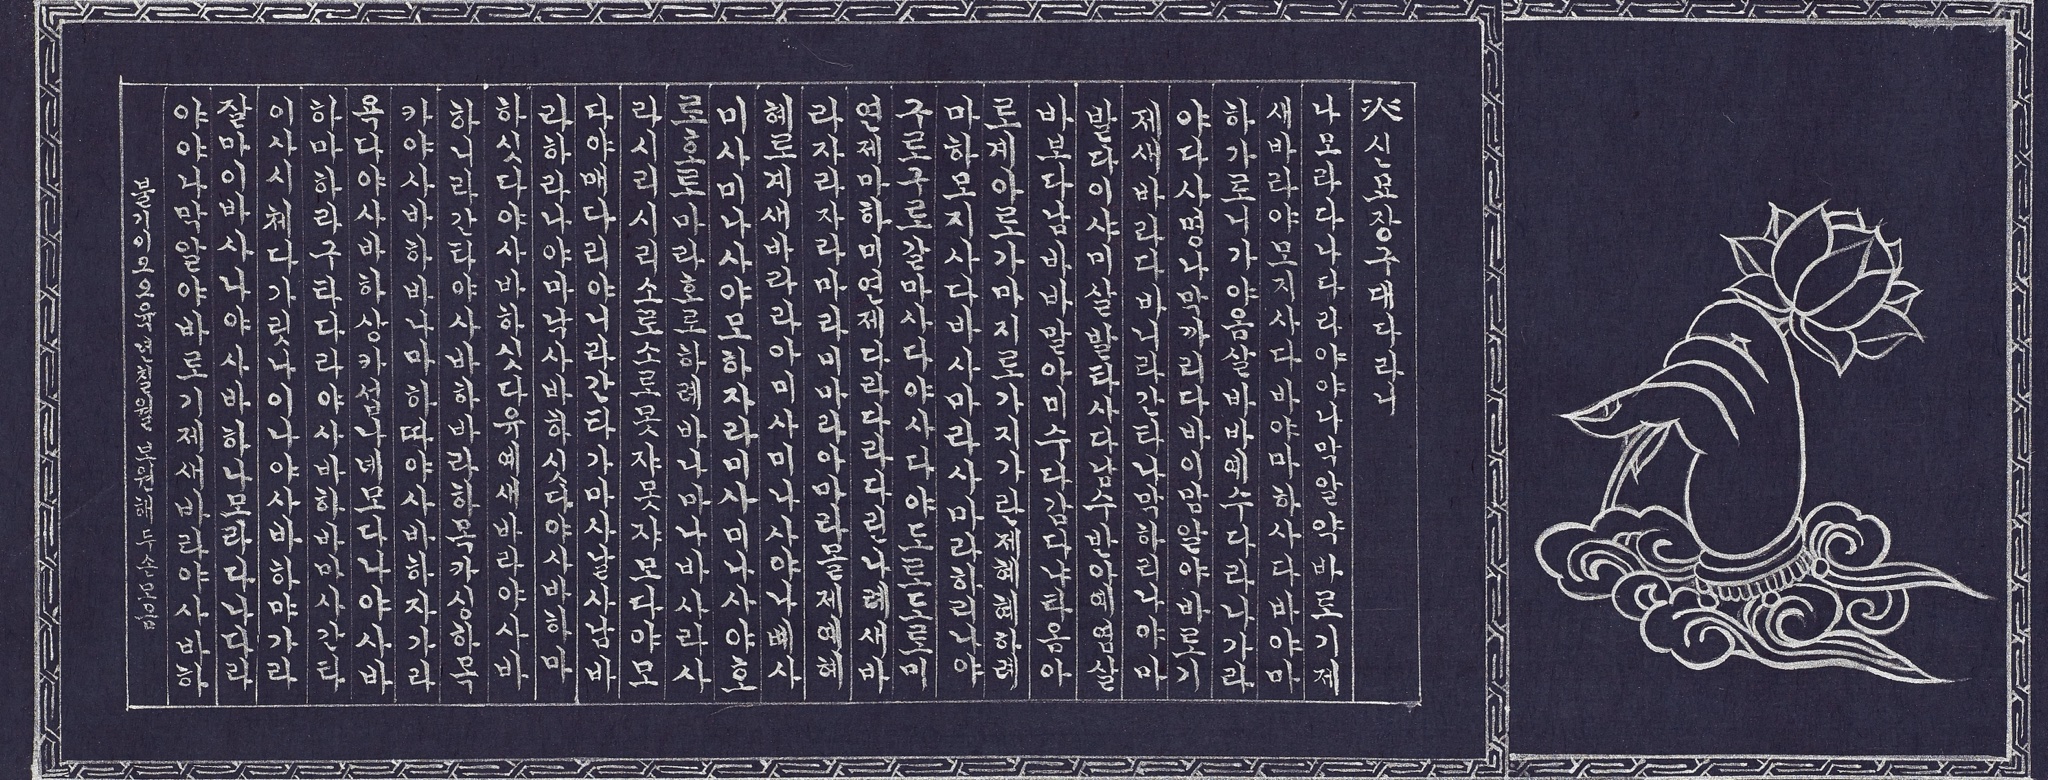 신묘장구대다라니
나모라다나다라야야나막알약바로기제
새바라야모지사다바야마하사다바야마
하가로니가야옴살바바예수다라나가라
야다사명나막까리다바이맘알야바로기
제새바라다바니라간타나막하리나야마
발다이사미살발타사다남수반아예염살
바보다남바바말아미수다감다냐타옴아
로계아로가마지로가지가란제혜혜하례
마하모지사다바사마라사마라하리나야
구로구로갈마사다야사다야도로도로미
연제마하미연제다라다라다린나례새바
라자라자라마라미마라아마라몰제예혜
혜로계새바라라아미사미나사야나베사
미사미나사야모하자라미사미나사야호
로호로마라호로하례바나마나바사라사
라시리시리소로소로못쟈못쟈모다야모
다야매다리야니라간타가마사날사남바
라하라나야마낙사바하싯다야사바하마
하싯다야사바하싯다유예새바라야사바
하니라간타야사바하바라하목카싱하목
카야사바하바나마하따야사바하자가라
욕다야사바하상카섭나녜모다나야사바
하마하라구타다라야사바하바마사간타
이사시체다가릿나이나야사바하먀가라
잘마이바사나야사바하나모라다나다라
야야나막알야바로기제새바라야사바하
불기이오오육년칠월 부원해 두손모음